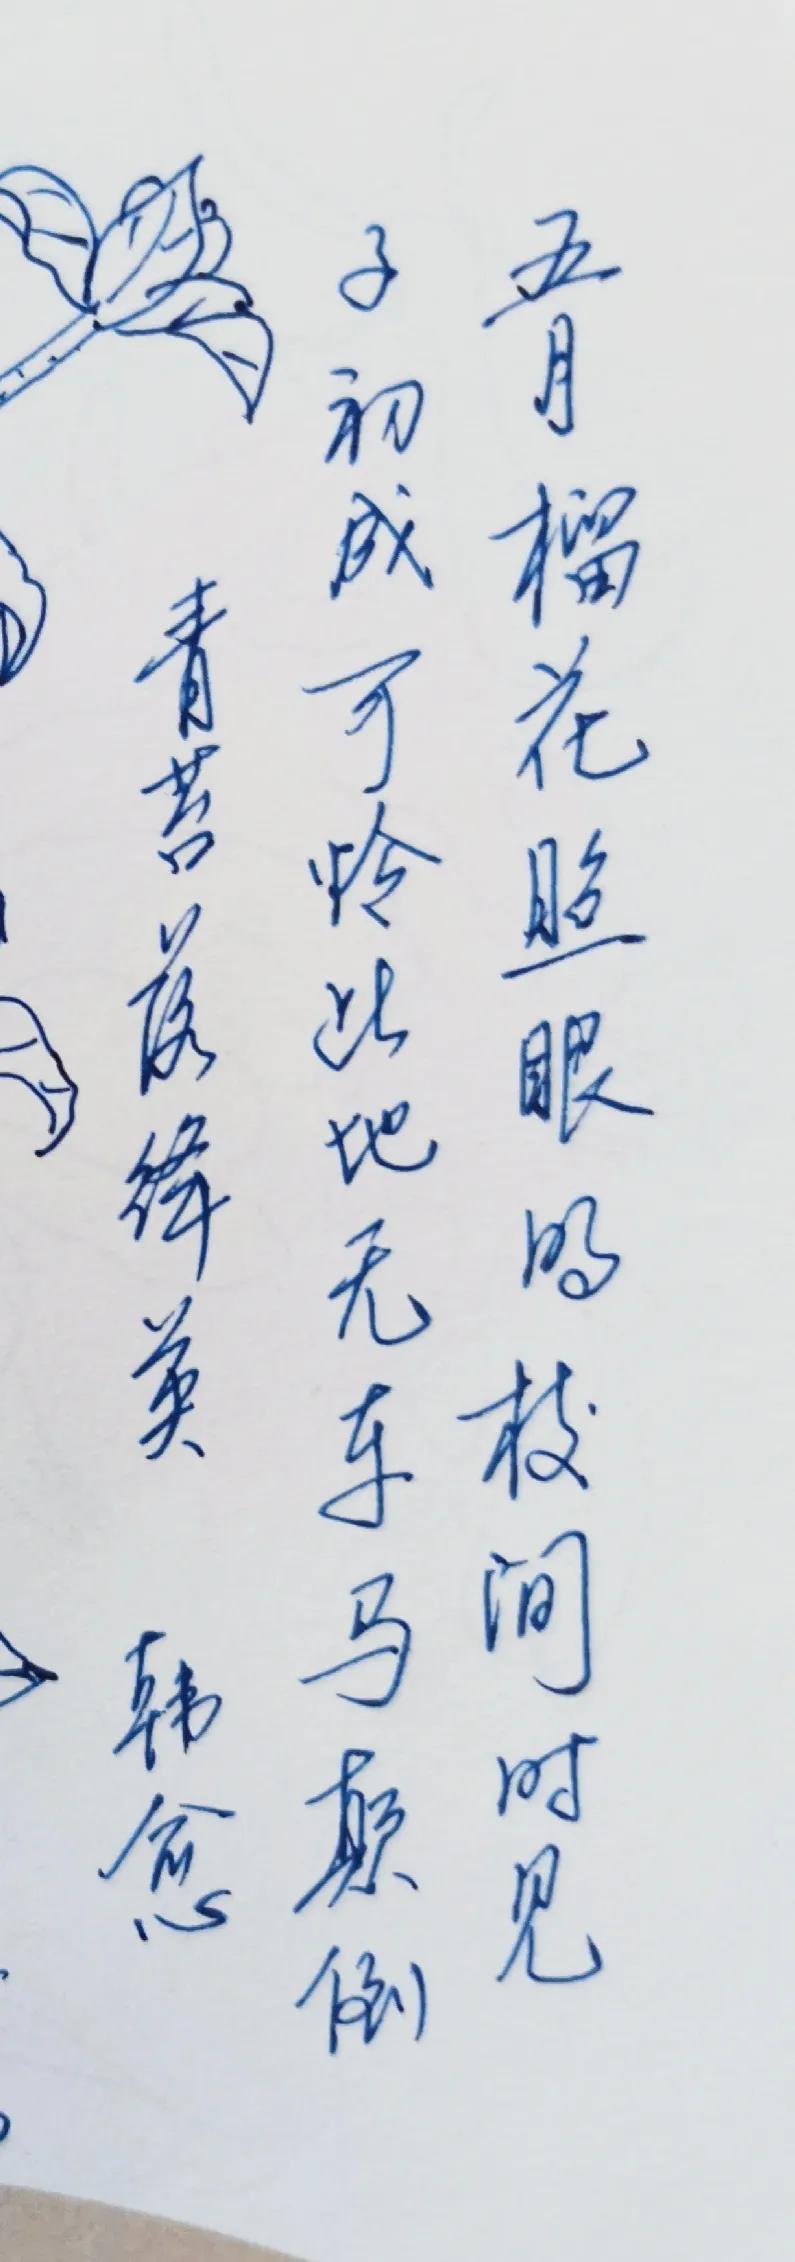 五月榴花照眼明枝间时见
子初成可怜此地无车马颠倒
青苔落绛英 韩愈